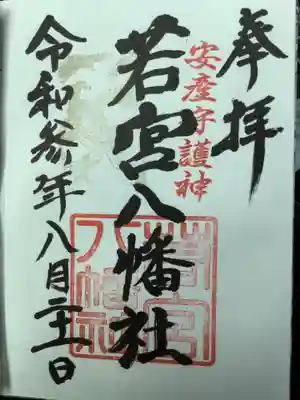 奉拝
安産守護神
若宮八幡社
令和参年八月二十一日
若宮
八幡社